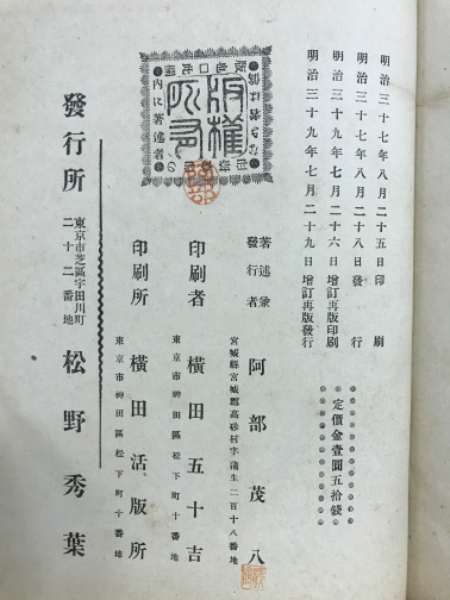 明治三十七年八月二十五日印刷
明治三十七年八月二十八日發行
明治三十九年七月二十六日增訂再版印刷
明治三十九年七月二十九日增訂再版發行
定價金壹圓五拾錢
版權所有
內に著述者の
著述兼
發行者
阿部茂八
宮城縣宮城郡高砂村字蒲生二百十八番地
印刷者
橫田五十吉
東京市神田區松下町十番地
印刷所
橫田活版所
東京市神田區松下町十番地
發行所
東京市芝區宇田川町
二十二番地
松野秀葉